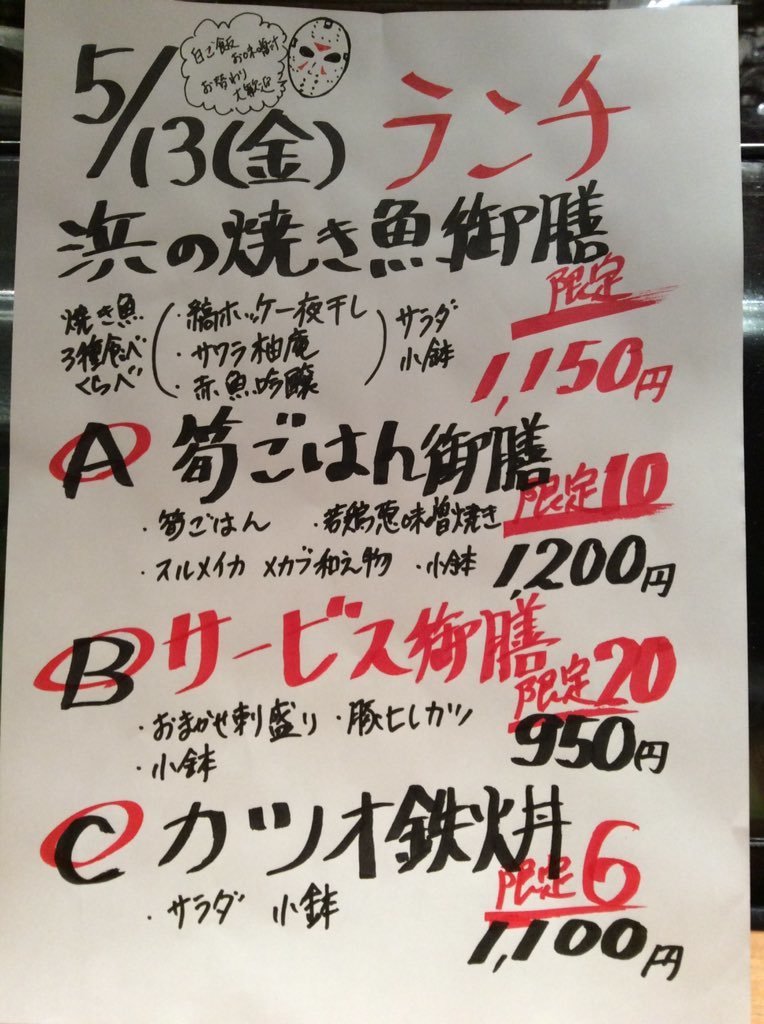 白ご飯
お味噌汁
お替わり
大歓迎
5/13(金) ランチ
浜の焼き魚御膳
限定
焼き魚
3種食べ
くらべ
・縞ホッケ一夜干し
・サワラ柚庵
・赤魚吟醸
サラダ
小鉢
1,150円
A 筍ごはん御膳
限定10
・筍ごはん ・若鶏葱味噌焼き
・スルメイカ メカブ和え物 ・小鉢
1,200円
B サービス御膳
限定20
・おまかせ刺盛り ・豚ヒレカツ
・小鉢
950円
C カツオ鉄火丼
限定6
・サラダ 小鉢
1,100円